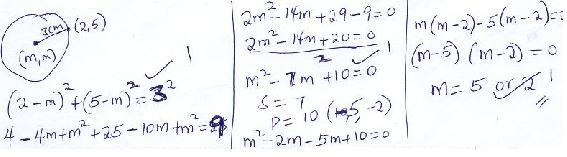 3cm (2,5)
(m,m)
1
(2-m)² + (5-m)² = 3²
4 - 4m + m² + 25 - 10m + m² = 9
2m² - 14m + 29 - 9 = 0
2m² - 14m + 20 = 0
2
1
m² - 7m + 10 = 0
S = 7
P = 10 (-5, -2)
m² - 2m - 5m + 10 = 0
m(m-2) - 5(m-2) = 0
(m-5) (m-2) = 0
m = 5 or 2 1